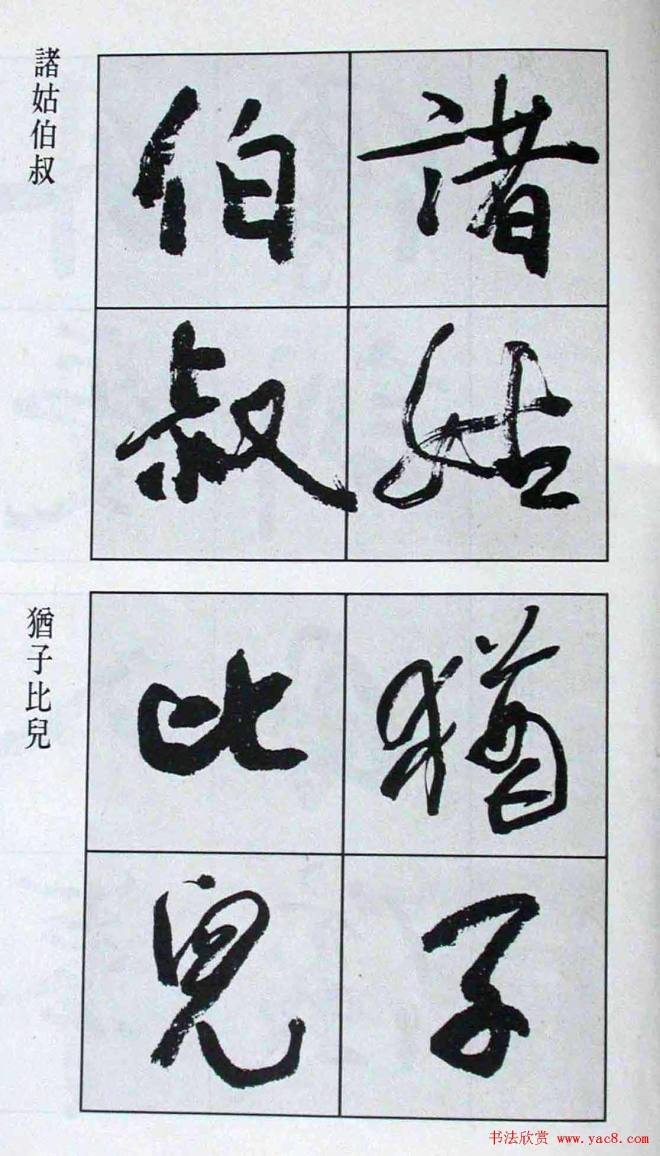 諸姑
伯叔
諸姑伯叔
猶子
比兒
猶子比兒
书法欣赏 www.yac8.com